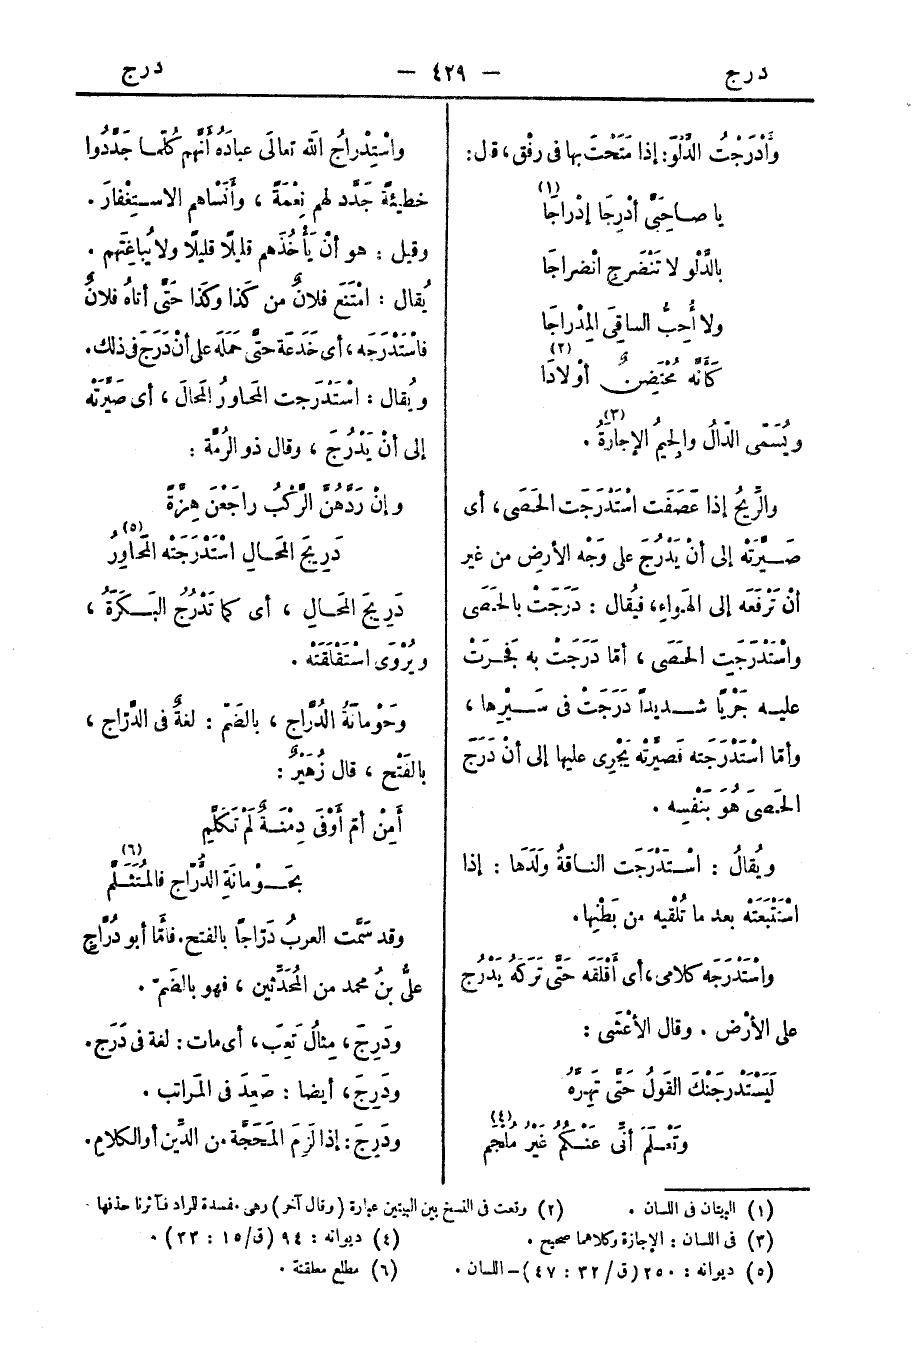 درج
— ٤٢٩ —
درج
وأَدْرَجْتُ الدَّلْوَ: إذا مَتَحْتَ بها فى رِفْق، قال:
يا صاحِبَىَّ أَدْرِجَا إدْراجَا (١)
بالدَّلْوِ لا تَنْضَرِج انْضراجَا
ولا أُحِبُّ الساقِىَ المِدْراجَا
كَأنَّه مُحْتَضِنٌ أوْلادَا (٢)
ويُسَمَّى الدّالُ والجِيمُ الإجارَةُ (٣) .
والرِّيحُ إذا عَصَفَت اسْتَدْرَجَت الحَصَى، أى
صَيَّرَتْه إلى أنْ يَدْرُجَ على وَجْه الأرضِ من غير
أنْ تَرْفَعَه إلى الهَواءِ، فيُقال : دَرَجَتْ بالحَصَى
واسْتَدْرَجَتِ الحَصَى ، أمّا دَرَجَتْ به فَجَرتْ
عليه جَرْيًا شديداً دَرَجَتْ فى سَيْرِها ،
وأمّا اسْتَدْرَجَته فصَيَّرَتْه يَجْرِى عليها إلى أنْ دَرَجَ
الحَصَى هُوَ بَنَفْسِه .
ويُقالُ : اسْتَدْرَجَت الناقةُ ولَدَها : إذا
اسْتَتْبَعَتْه بعد ما تُلْقِيه من بَطْنِها.
واسْتَدْرَجَه كلامى، أى أقْلَقَه حَتَّى تَرَكَه يَدْرُج
على الأرْضِ . وقال الأعْشَى :
لَيَسْتَدْرِجَنْكَ القولُ حَتَّى تَهِرَّهُ
وتَعْلَمَ أنِّى عَنْكُمُ غَيْرُ مُلْجَمِ (٤)
واسْتِدْراجُ الله تعالَى عبادَهُ أنَّهم كُلَّما جَدَّدُوا
خطيئَةً جَدَّد لهم نِعْمَةً ، وأَنْسَاهم الاستِغْفارَ .
وقيل : هو أنْ يَأْخُذَهم قليلًا قليلًا ولا يُباغِتَهم .
يُقال : امْتَنَع فلانٌ من كَذا وكَذا حَتَّى أتاهُ فلانٌ
فاسْتَدْرَجَه ، أى خَدَعَهُ حتَّى حَمَلَه على أنْ دَرَجَ فى ذلك.
ويُقال : اسْتَدْرَجت المحَاورُ المَحالَ ، أى صَيَّرَتْه
إلى أنْ يَدْرُجَ ، وقال ذو الرُمَّة :
وإنْ رَدَّهُنَّ الرَّكْبُ راجَعْنَ هِزَّةً
دَرِيجَ المَحَالِ اسْتَدْرَجَتْه المَحَاوِرُ (٥)
دَرِيجَ المَحَالِ ، أى كما تَدْرُجُ البَكَرَةُ ،
ويُرْوَى اسْتَفْلَقَتْه .
وحَوْمانَةُ الدُرَّاج ، بالضَمّ : لغةٌ فى الدَّرَاج ،
بالفَتْح ، قال زُهَيْرٌ :
أَمِنْ أمِّ أوْفَى دِمْنَةٌ لَمْ تَكَلَّمِ
بَحَوْمانَةِ الدُّرّاجِ فالمُتَثَلَّمِ (٦)
وقد سَمَّت العربُ دَرّاجاً بالفتح. فأمّا أبو دُرّاجٍ
علىُّ بنُ محمد من المُحَدِّثين ، فهو بالضَمّ .
ودَرِجَ ، مِثالُ تَعِبَ ، أى مات : لغة فى دَرَج.
ودَرِجَ ، أيضا : صَعِدَ فى المَراتب .
ودَرِجَ : إذا لَزِمَ المَحَجَّة من الدِّين أو الكلامِ.
(١) البيتان فى اللسان .
(٢) وقعت فى النسخ بين البيتين عبارة (وقال آخر) وهى مفسدة للراد فآثرنا حذفها .
(٣) فى اللسان : الإجازة وكلاهما صحيح .
(٤) ديوانه : ٩٤ (ق/ ١٥ : ٣٣) .
(٥) ديوانه : ٢٥٠ (ق/ ٣٢ : ٤٧) – اللسان .
(٦) مطلع معلقته .